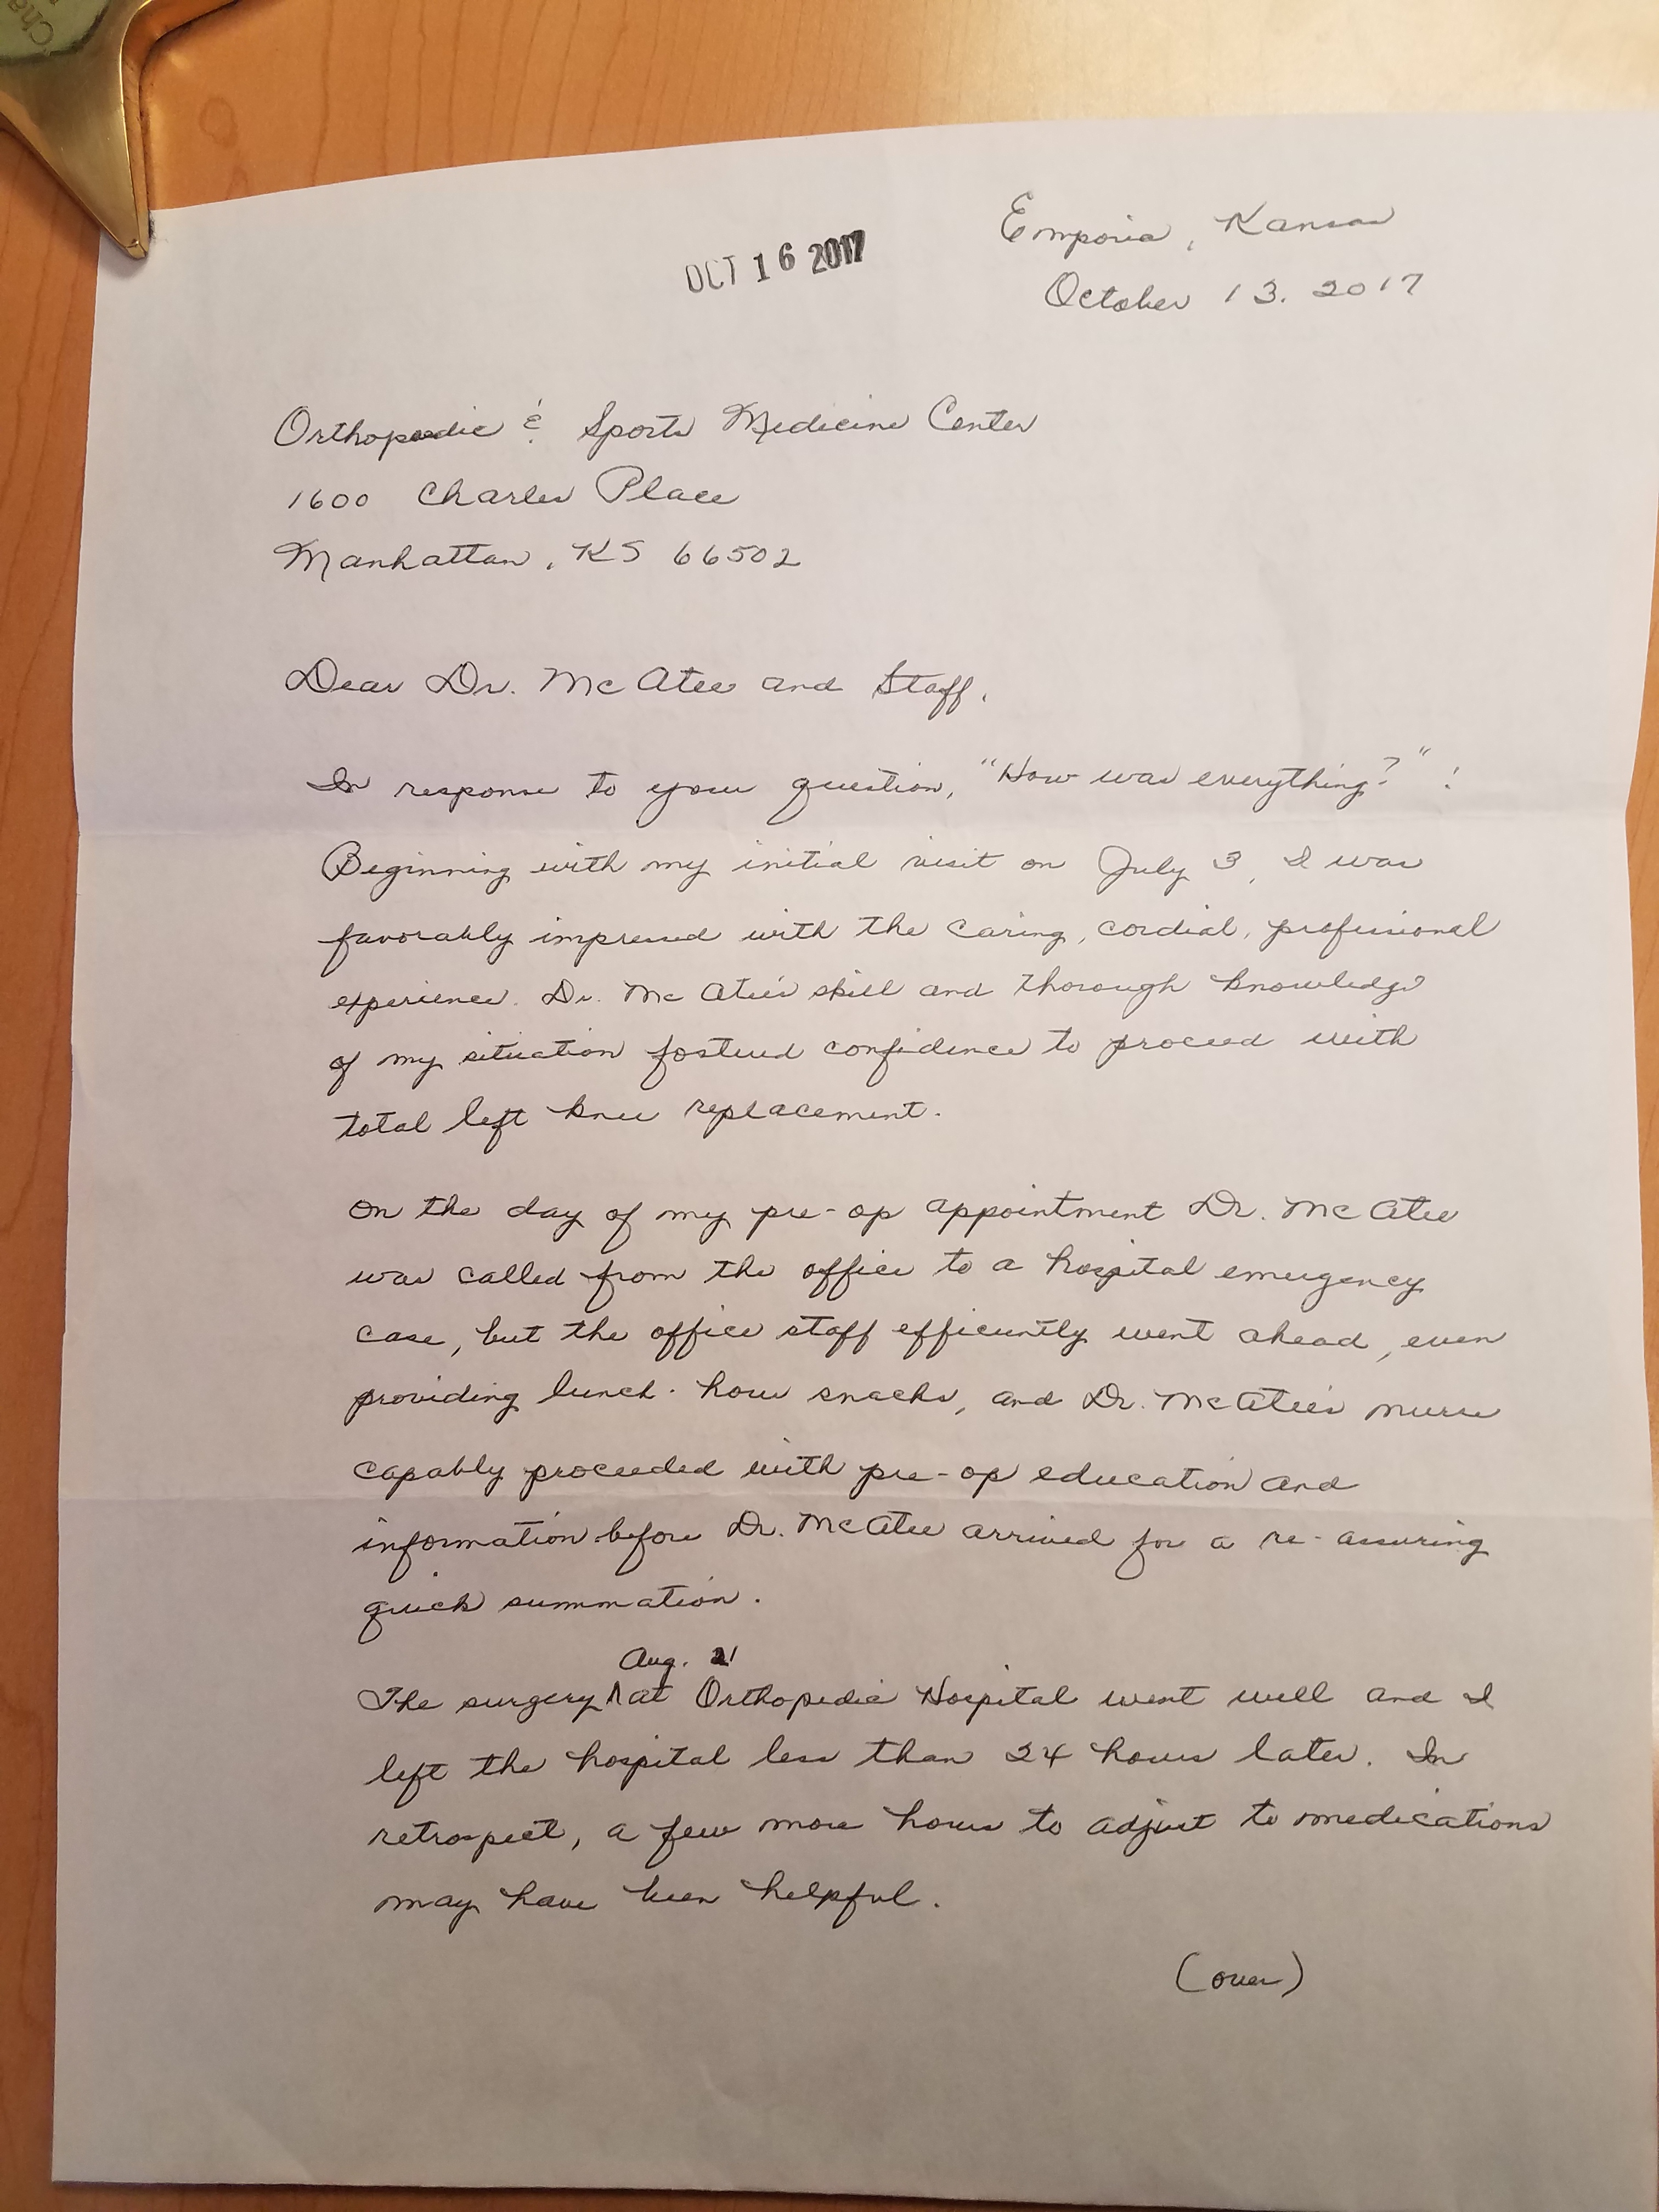 Cha
OCT 16 2017
Emporia, Kansas
October 13, 2017
Orthopaedic & Sports Medicine Center
1600 Charles Place
Manhattan, KS 66502
Dear Dr. McAtee and Staff,
In response to your question, "How was everything?":
Beginning with my initial visit on July 3, I was
favorably impressed with the caring, cordial, professional
experience. Dr. McAtee's skill and thorough knowledge
of my situation fostered confidence to proceed with
total left knee replacement.
On the day of my pre-op appointment Dr. McAtee
was called from the office to a hospital emergency
case, but the office staff efficiently went ahead, even
providing lunch-hour snacks, and Dr. McAtee's nurse
capably proceeded with pre-op education and
information before Dr. McAtee arrived for a re-assuring
quick summation.
Aug. 21
The surgery ^ at Orthopedic Hospital went well and I
left the hospital less than 24 hours later. In
retrospect, a few more hours to adjust to medications
may have been helpful.
(over)